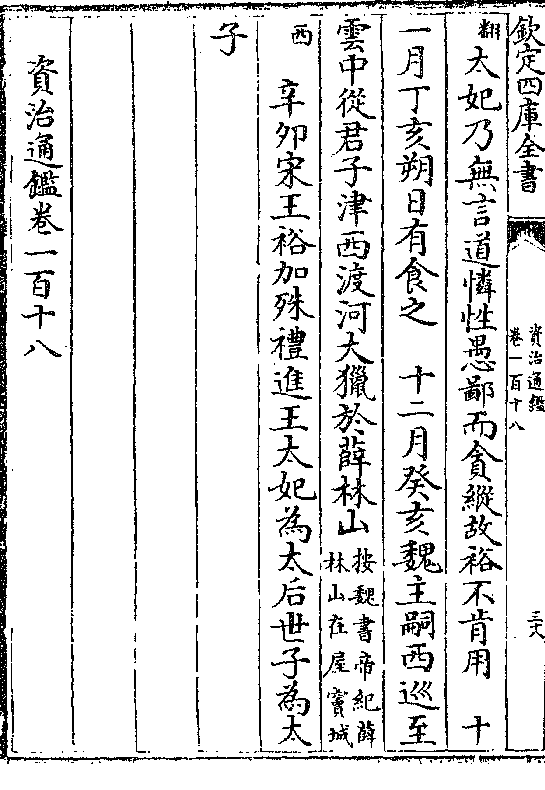 欽定四庫全書
資治通鑑
卷一百十八
三八
翻
太妃乃無言道憐性愚鄙而貪縱故裕不肯用　十
一月丁亥朔日有食之　十二月癸亥魏主嗣西巡至
雲中從君子津西渡河大獵於薛林山
按魏書帝紀薛
林山在屋竇城
西
辛卯宋王裕加殊禮進王太妃為太后世子為太
子
資治通鑑卷一百十八